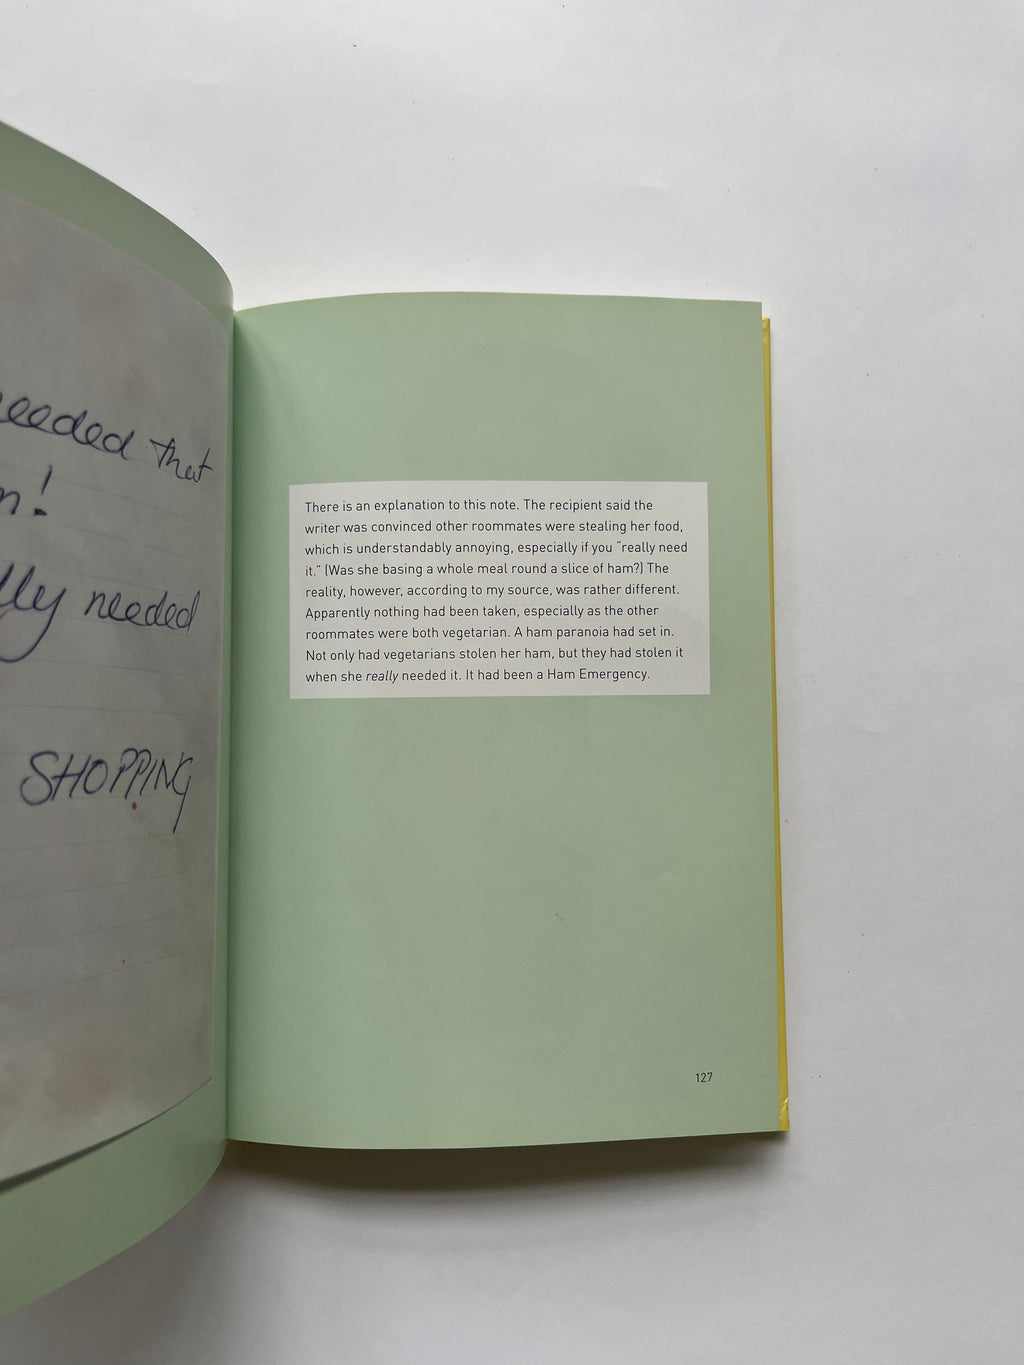 needed that
!
needed
SHOPPING
There is an explanation to this note. The recipient said the
writer was convinced other roommates were stealing her food,
which is understandably annoying, especially if you “really need
it.” (Was she basing a whole meal round a slice of ham?) The
reality, however, according to my source, was rather different.
Apparently nothing had been taken, especially as the other
roommates were both vegetarian. A ham paranoia had set in.
Not only had vegetarians stolen her ham, but they had stolen it
when she really needed it. It had been a Ham Emergency.
127